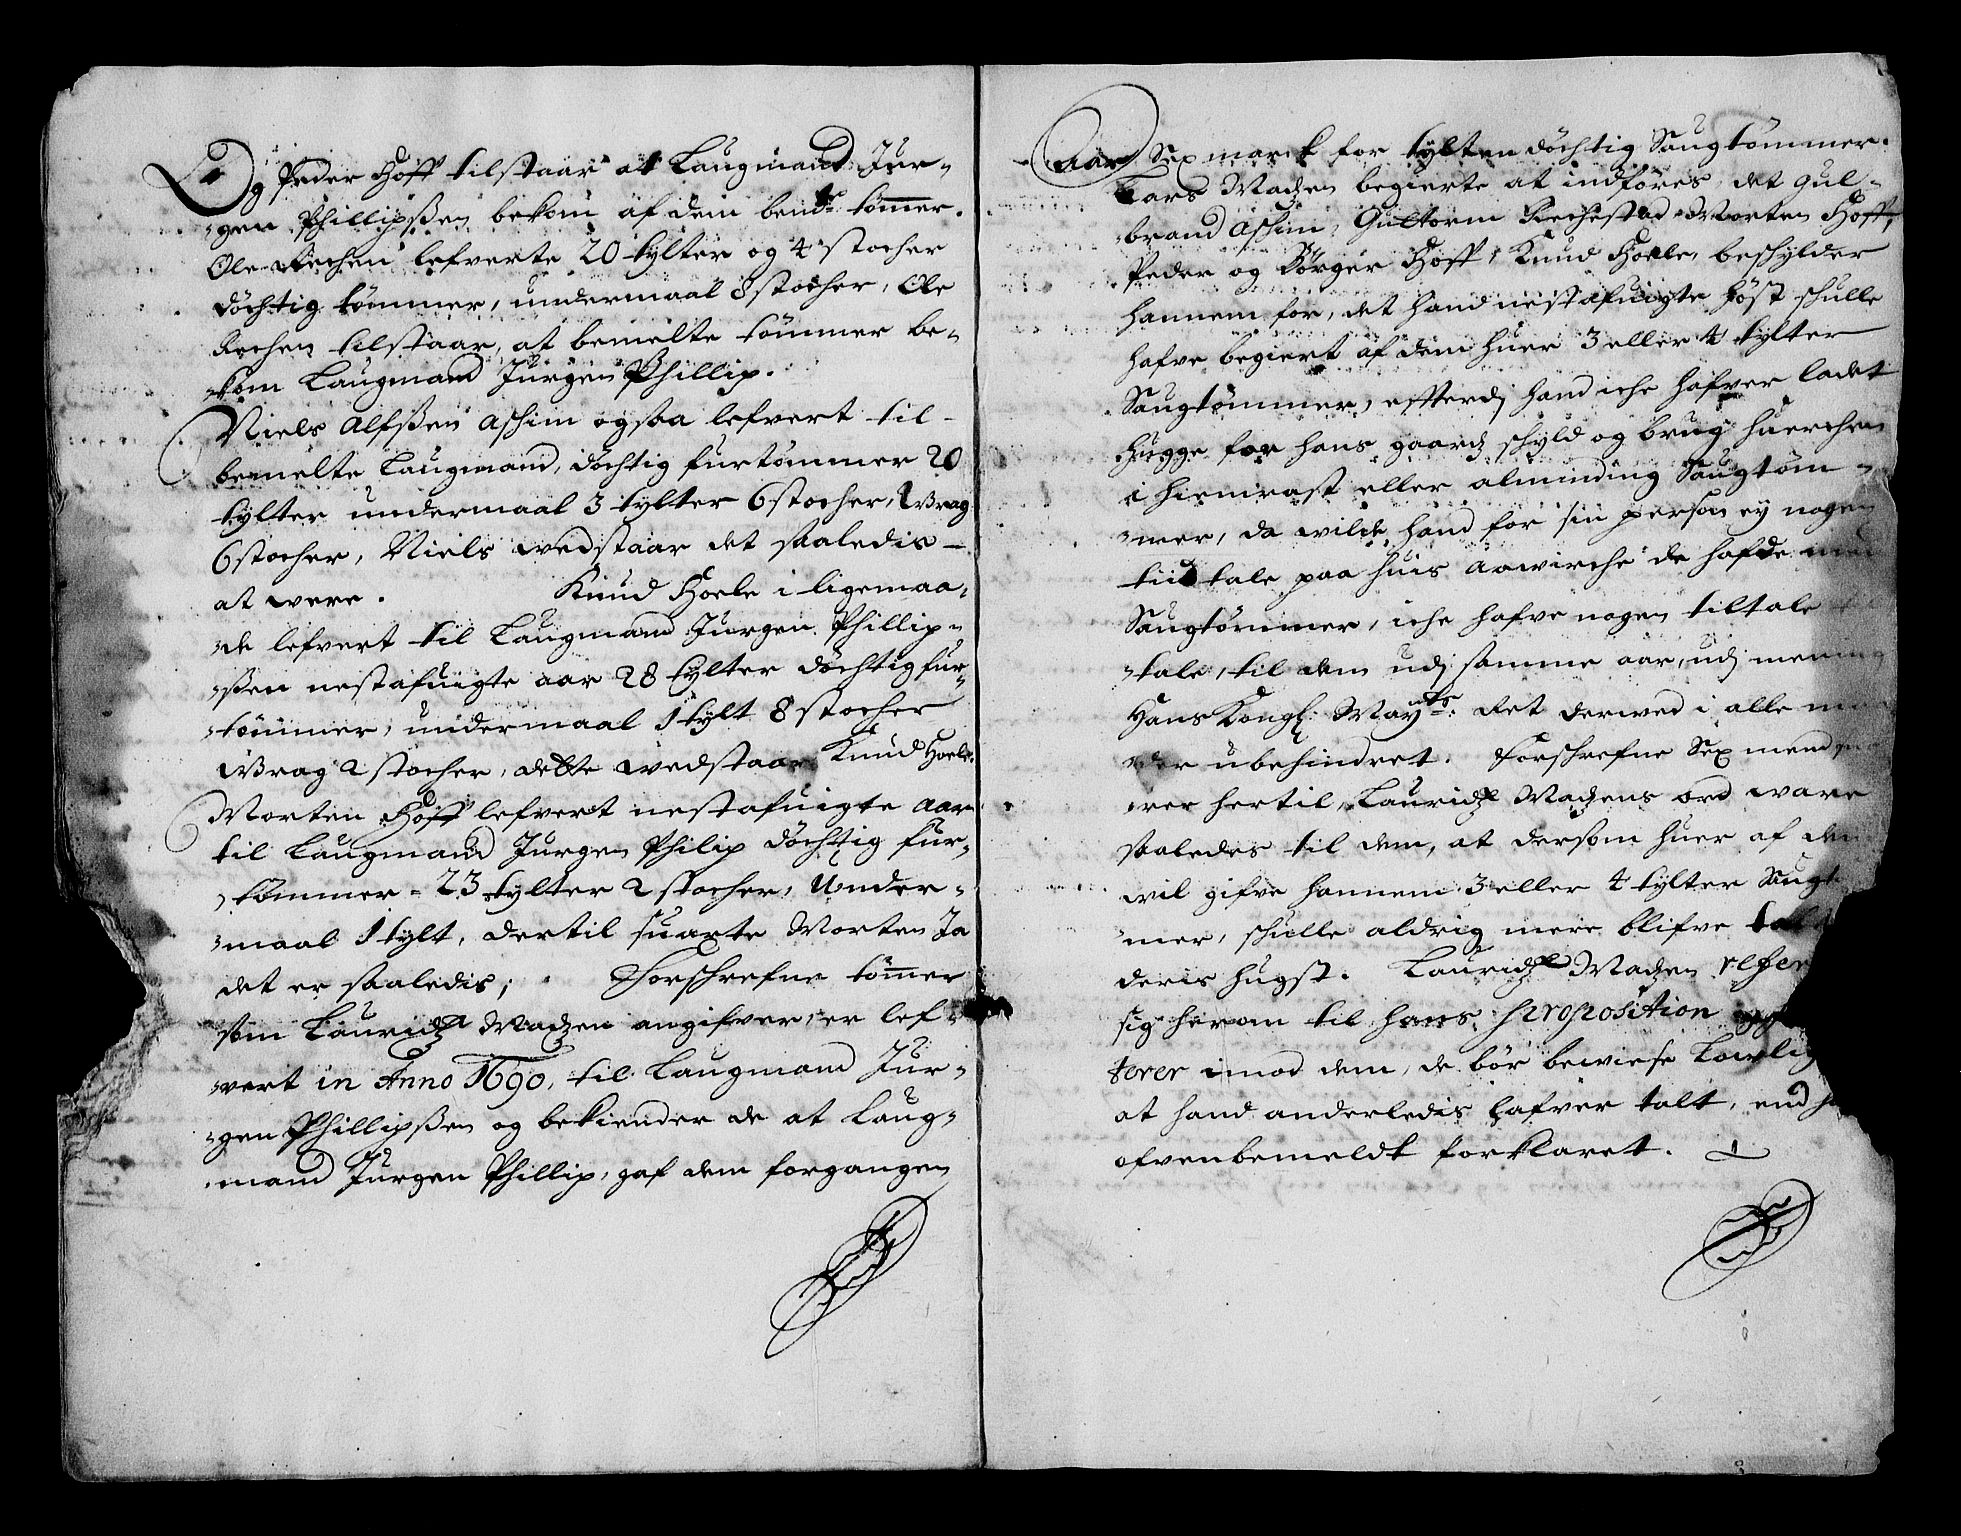 Og Peder Hoff tilstaar at Laugmand Jur-
gen Phillipsßen bekom af dem bemte tömmer.
Ole Rechen lefverte 20 tylter og 4 stocher
döchtig tömmer, undermaal 8 stocher, Ole
Rechen tilstaar, at bemelte tömmer be-
kom Laugmand Jürgen Phillip.
Niels Alfsßen Aschim ogsaa lefvert til
bemelte Laugmand, döchtig furtömmer 20
tylter undermaal 3 tylter 6 stocher, Wrag
6 stocher, Niels wedstaar det saaledis
at were. Knud Hoele i ligemaa-
de lefvert til Laugmand Jurgen Phillip-
ßen nestafuigte aar 28 tylter döchtig fur-
tömmer, undermaal 1 tylt 8 stocher
Wrag 2 stocher, dette wedstaar Knud Hoele.
Morten Hoff lefvert nestafuigte aar
til Laugmand Jurgen Philip döchtig fur-
tömmer - 23 tylter 2 stocher, Under-
maal 1 tylt, dertil suarte Morten Ja
det er saaledis; Forschrefne tömmer
som Lauridz Madzen angifver, er lef-
vert in Anno 1690, til Laugmand Jur-
gen Phillipsßen og bekiender de at Laug-
mand Jurgen Phillip, gaf dem forgangen
Aar Sex marck for tylten döchtig Saugtömmer.
Lars Madzen begierte at indföres, det Gul-
brand Aschim, Guttorm Rechestad Morten Hoff,
Peder og Börger Hoff, Knud Hoele, beschylder
hannem for, det hand nestafuigte höst schulle
hafve begiert af dem huer 3 eller 4 tylter
Saugtömmer, efterdj hand iche hafver ladet
hugge for hans gaardz schyld og brug huerchen
i hiemrast eller alminding Saugtöm-
mer, da wilde hand for sin person ey nogen
tiid tale paa huis aawirche de hafde med
Saugtömmer, iche hafve nogen tiltale
tale, til dem udj samme aar, udj mening
Hans Kongl: Mayts: Ret derved i alle
der ubehindret. Forschrefne Sex mend
rer hertil, Lauridz Madzens ord ware
saaledes til dem, at dersom huer af dem
wil gifve hannem 3 eller 4 tylter Saugt
mer, schulle aldrig mere blifve
deris hugst. Lauridz Madzen refer
sig herom til hans proposition
terer imod dem, de bör bewise Lowlig
at hand anderledis hafver talt, end
ofvenbemeldt forklaret.